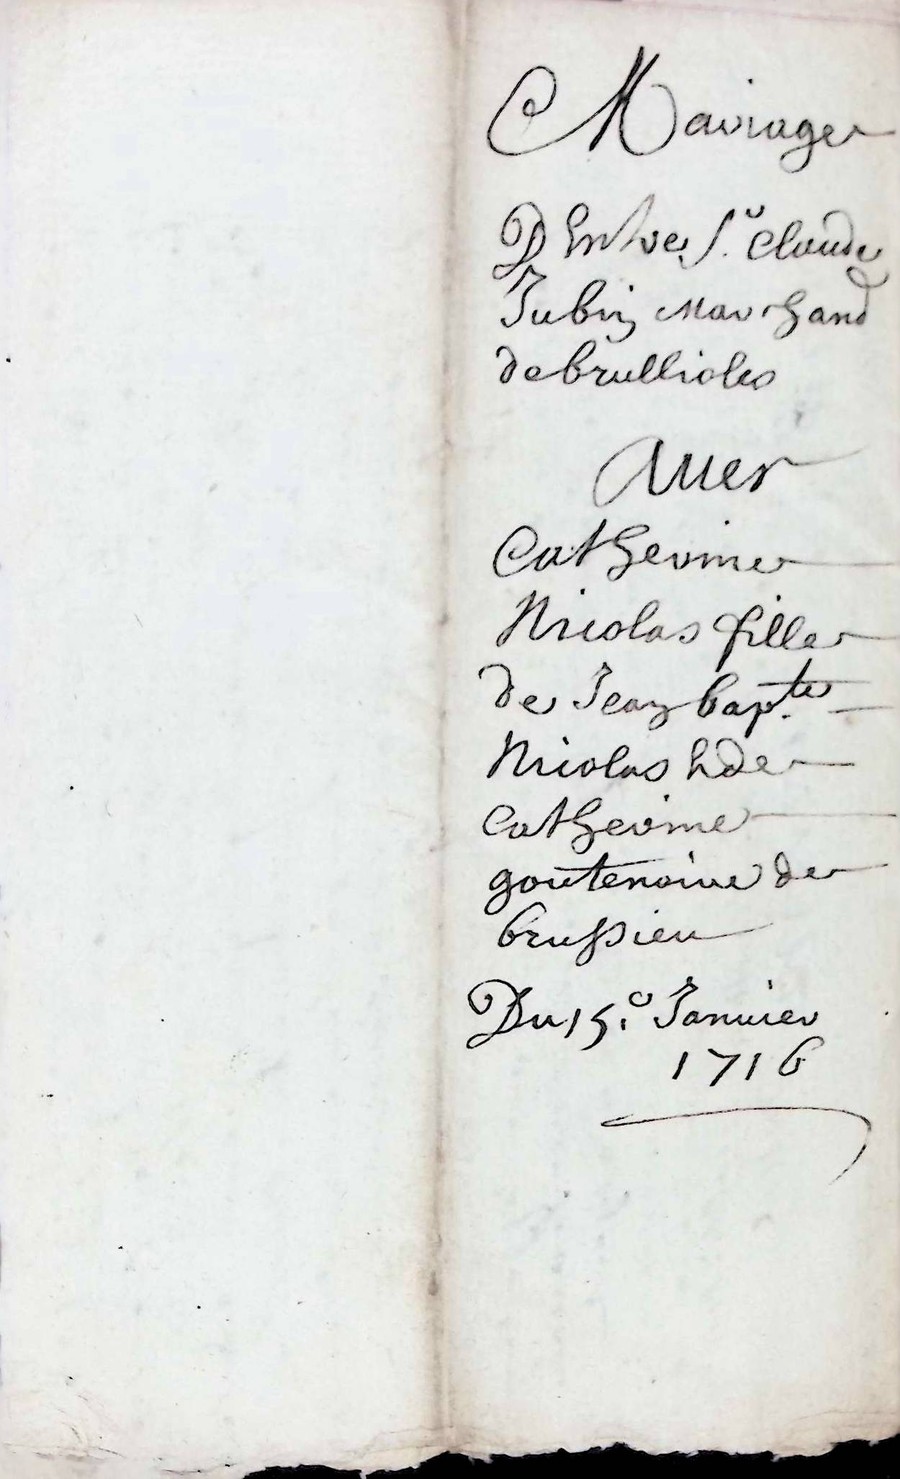 Mariage
D'Entre Sr. Claude
Jubin Marchand
de brullioles
Avec
Catherine
Nicolas fille
de Jean bapte.
Nicolas & de
Catherine
goutenoire de
brussieu
Du 15e Janvier
1716